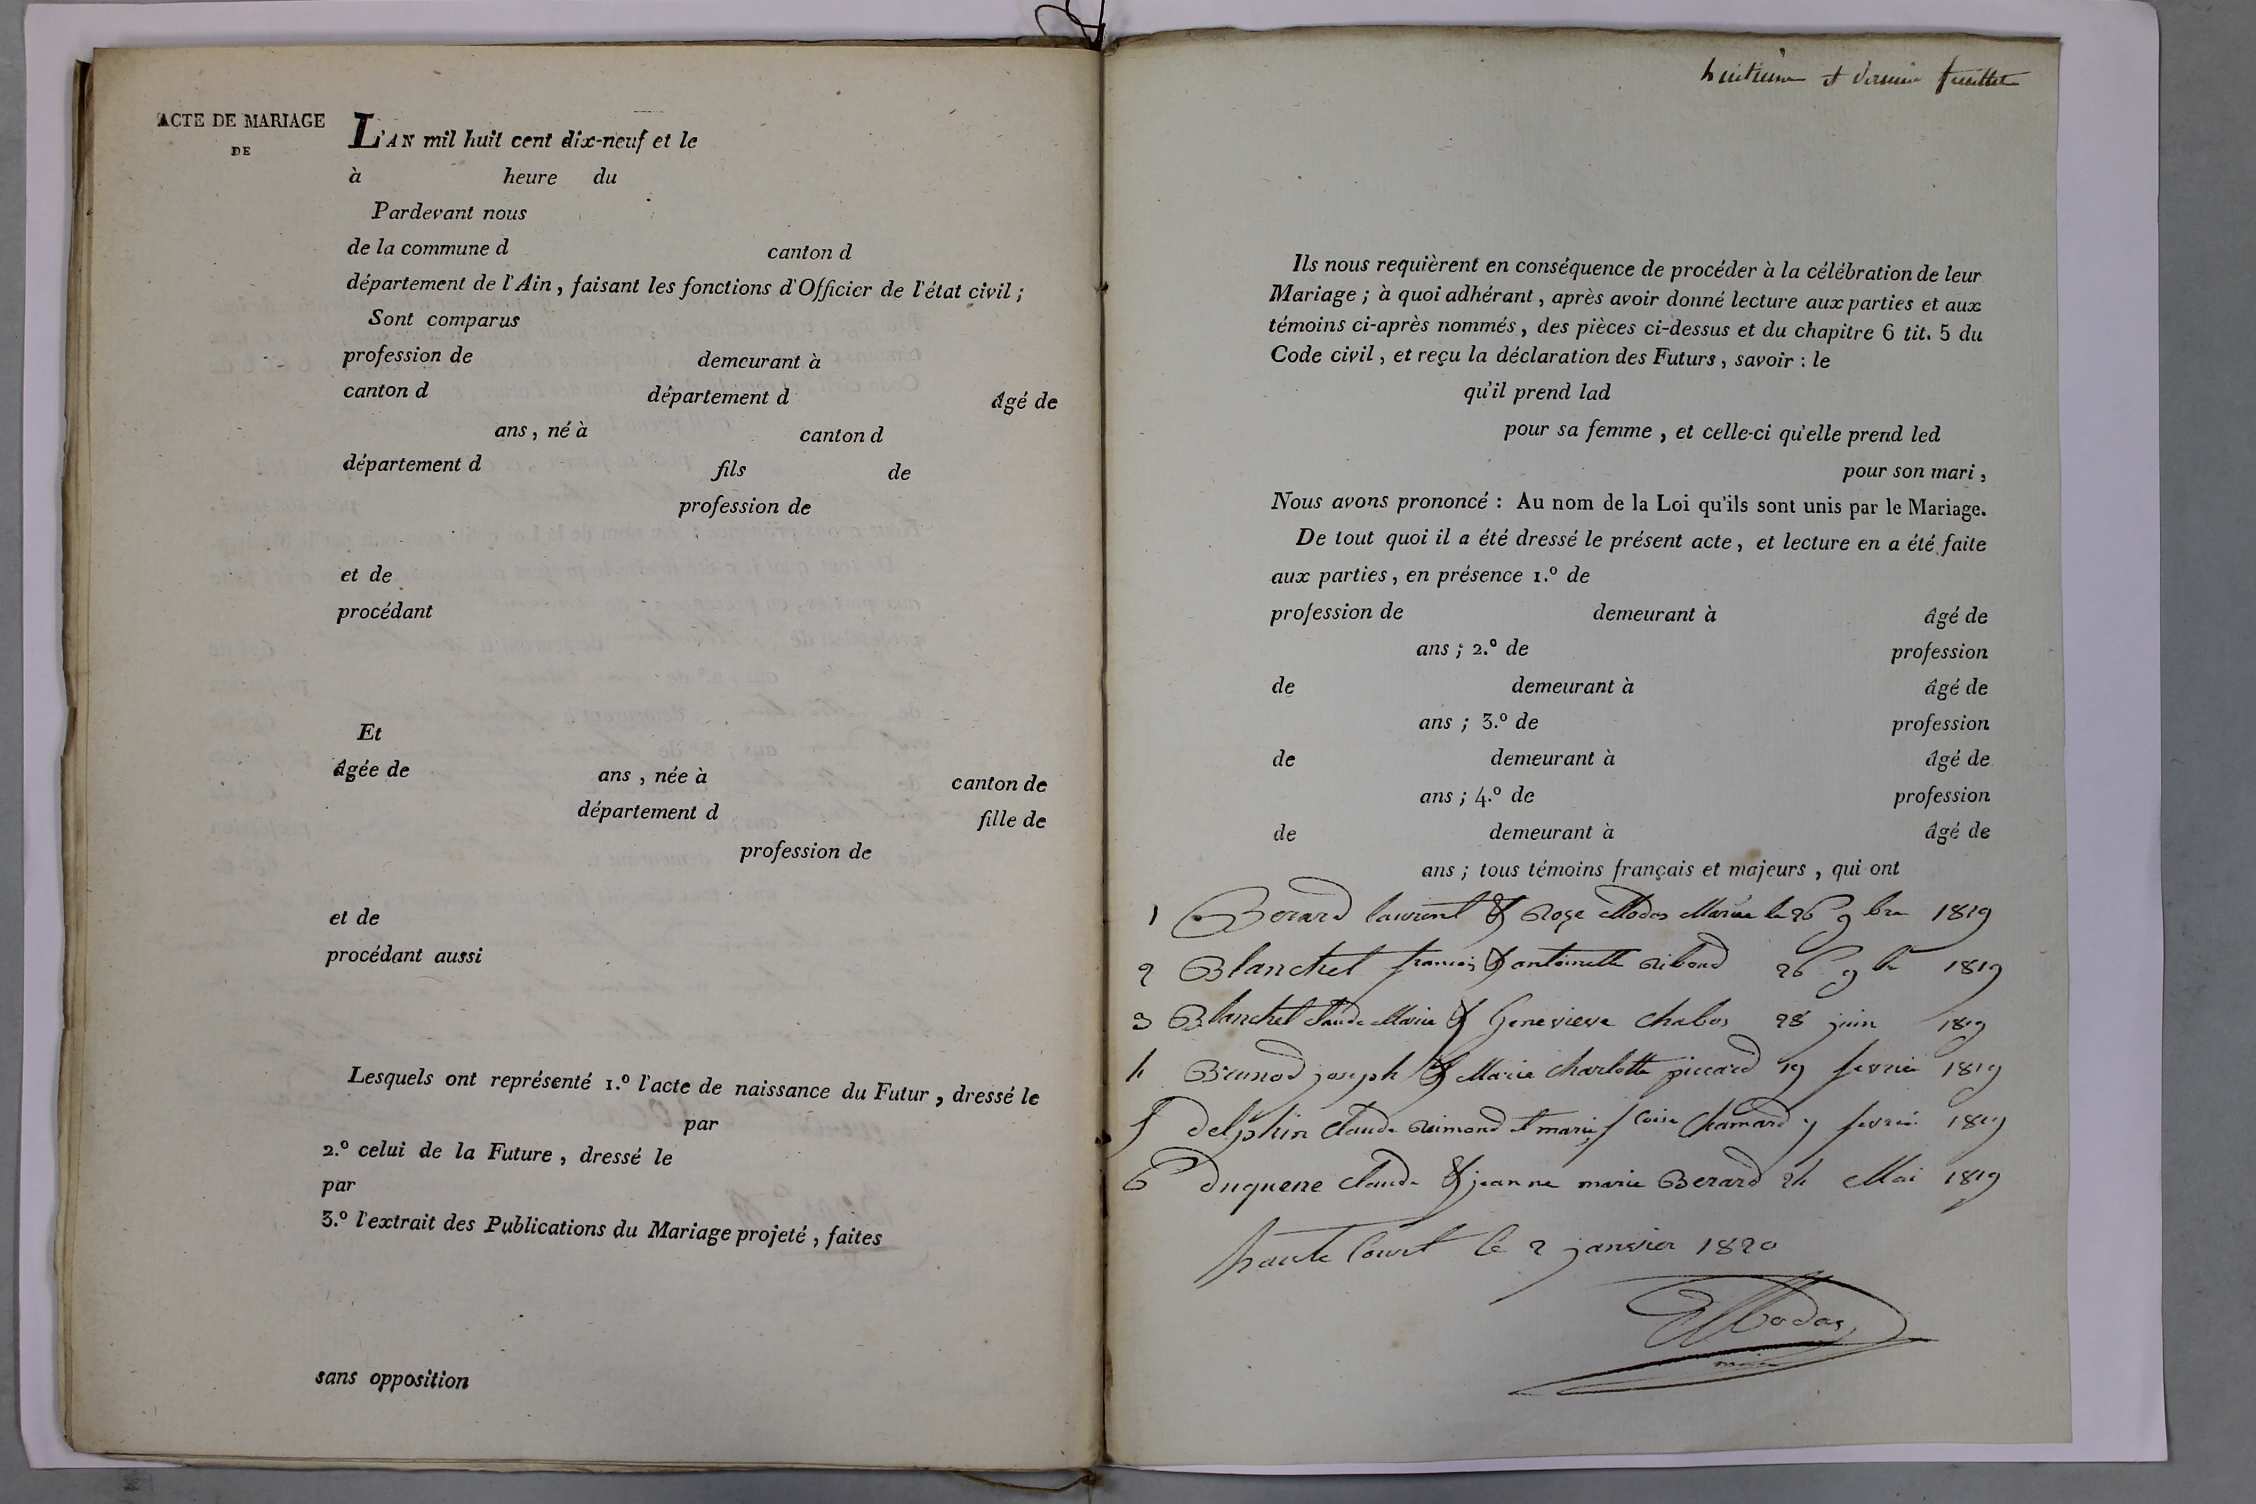 ACTE DE MARIAGE
DE
L'AN mil huit cent dix-neuf et le
à heure du
Pardevant nous
de la commune d canton d
département de l'Ain, faisant les fonctions d'Officier de l'état civil ;
Sont comparus
profession de demeurant à
canton d département d âgé de
ans, né à canton d
département d fils de
profession de
et de
procédant
Et
âgée de ans, née à canton de
département d fille de
profession de
et de
procédant aussi
Lesquels ont représenté 1.º l'acte de naissance du Futur, dressé le
par
2.º celui de la Future, dressé le
par
3.º l'extrait des Publications du Mariage projeté, faites
sans opposition
huitième et dernier feuillet
Ils nous requièrent en conséquence de procéder à la célébration de leur
Mariage ; à quoi adhérant, après avoir donné lecture aux parties et aux
témoins ci-après nommés, des pièces ci-dessus et du chapitre 6 tit. 5 du
Code civil, et reçu la déclaration des Futurs, savoir : le
qu'il prend lad
pour sa femme, et celle-ci qu'elle prend led
pour son mari,
Nous avons prononcé : Au nom de la Loi qu'ils sont unis par le Mariage.
De tout quoi il a été dressé le présent acte, et lecture en a été faite
aux parties, en présence 1.º de
profession de demeurant à âgé de
ans ; 2.º de profession
de demeurant à âgé de
ans ; 3.º de profession
de demeurant à âgé de
ans ; 4.º de profession
de demeurant à âgé de
ans ; tous témoins français et majeurs, qui ont
1 Berard laurent & Rose Modas Mariée le 26 9bre 1819
2 Blanchet francois & antoinette Riboud 26 9bre 1819
3 Blanchet Claude Marie & Genevieve Chabos 28 juin 1819
4 Brunod joseph & Marie Charlotte piccard 19 fevrier 1819
5 delphin Claude Rimond et marie fcoise Chamard 9 fevrier 1819
6 duquene Claude & jeanne marie Berard 24 Mai 1819
haute Court le 2 janvier 1820
Modas
maire